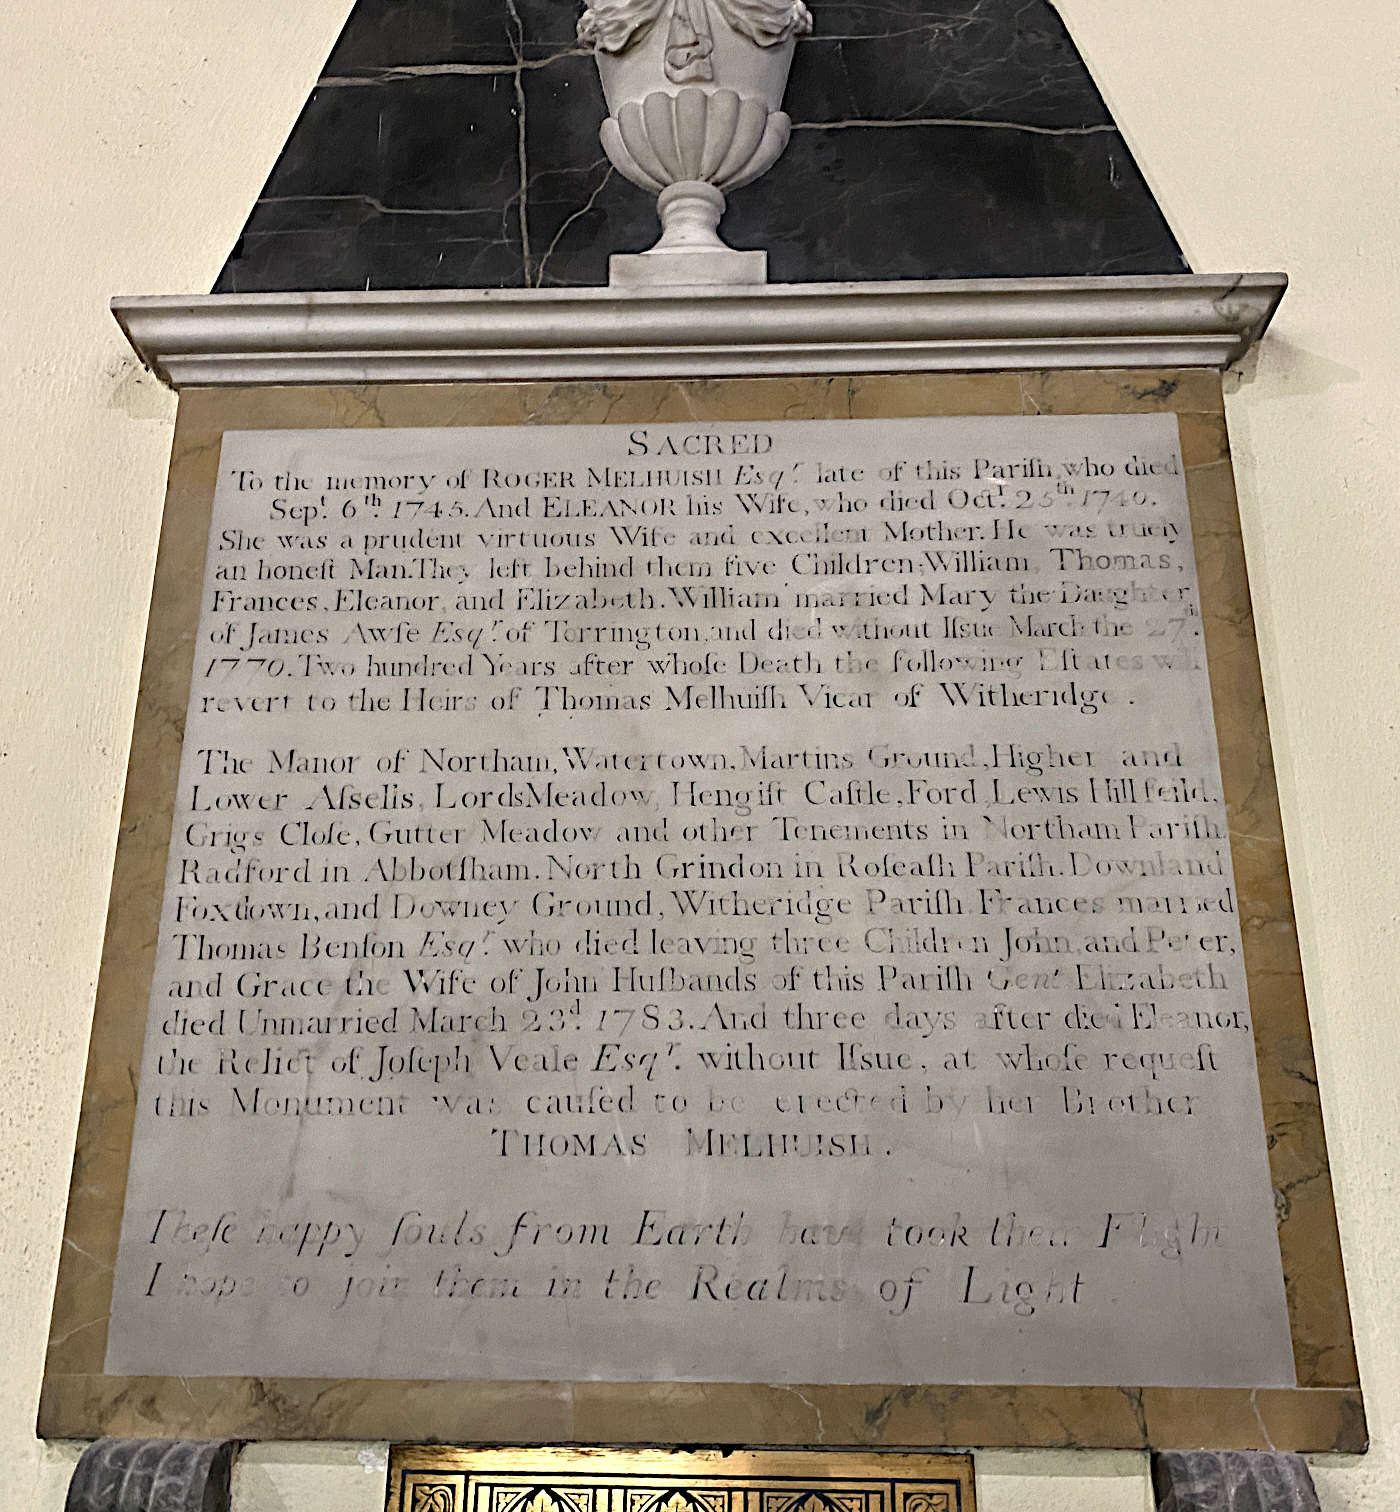 SACRED
To the memory of ROGER MELHUISH Esqr. late of this Pariſh, who died
Sept. 6th. 1745. And ELEANOR his Wife, who died Oct. 25th. 1740.
She was a prudent virtuous Wife and excellent Mother. He was truely
an honeſt Man. They left behind them five Children; William, Thomas,
Frances, Eleanor, and Elizabeth. William married Mary the Daughter
of James Awſe Esqr. of Torrington, and died without Iſsue March the 27th.
1770. Two hundred Years after whoſe Death the following Eſtates will
revert to the Heirs of Thomas Melhuiſh Vicar of Witheridge.
The Manor of Northam, Watertown, Martins Ground, Higher and
Lower Aſsells, LordsMeadow, Hengiſt Caſtle, Ford, Lewis Hill feild,
Grigs Cloſe, Gutter Meadow and other Tenements in Northam Pariſh.
Radford in Abbotſham. North Grindon in Roſeaſh Pariſh. Downland
Foxdown, and Downey Ground, Witheridge Pariſh. Frances married
Thomas Benſon Esqr. who died leaving three Children John, and Peter,
and Grace the Wife of John Huſbands of this Pariſh Gent. Elizabeth
died Unmarried March 23d. 1783. And three days after died Eleanor,
the Relict of Joſeph Veale Esqr. without Iſsue, at whoſe requeſt
this Monument was cauſed to be erected by her Brother
THOMAS MELHUISH.
Theſe happy ſouls from Earth have took their Flight
I hope to join them in the Realms of Light